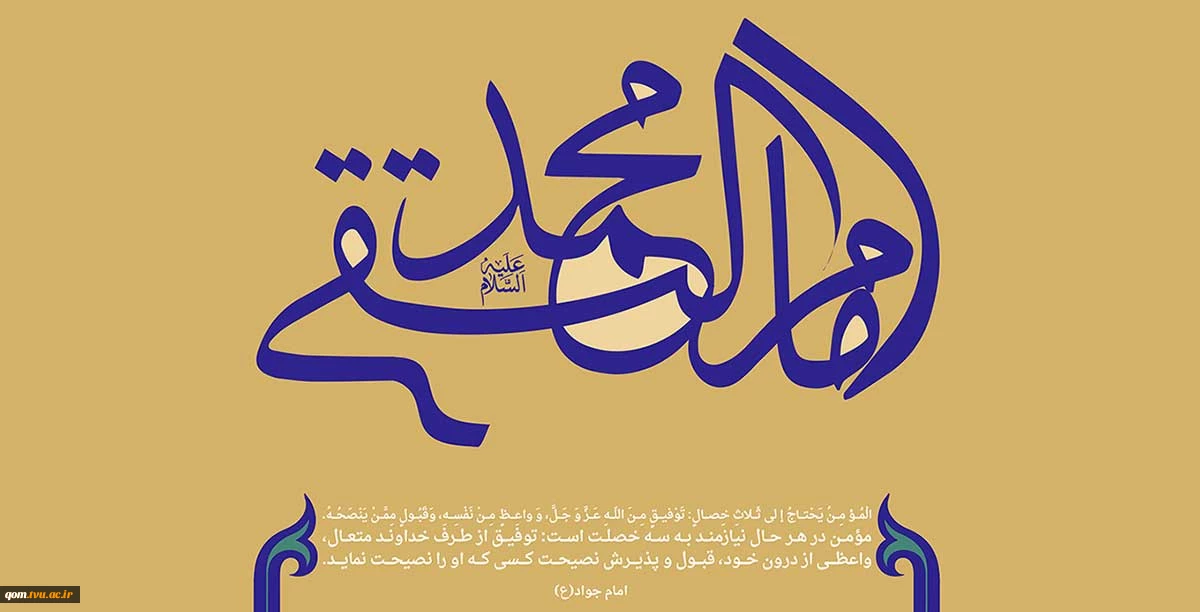 امام محمد التقی
عَلَیْهِ السَّلام
الْمُؤمِنُ يَحْتاجُ إلى ثَلاثِ خِصالٍ: تَوْفيقٍ مِنَ اللّهِ عَزَّ وَ جَلَّ، وَ واعِظٍ مِنْ نَفْسِهِ، وَقَبُولٍ مِمَّنْ يَنْصَحُهُ.
مؤمن در هر حال نیازمند به سه خصلت است: توفیق از طرف خداوند متعال،
واعظی از درون خود، قبول و پذیرش نصیحت کسی که او را نصیحت نماید.
امام جواد(ع)
qom.tvu.ac.ir